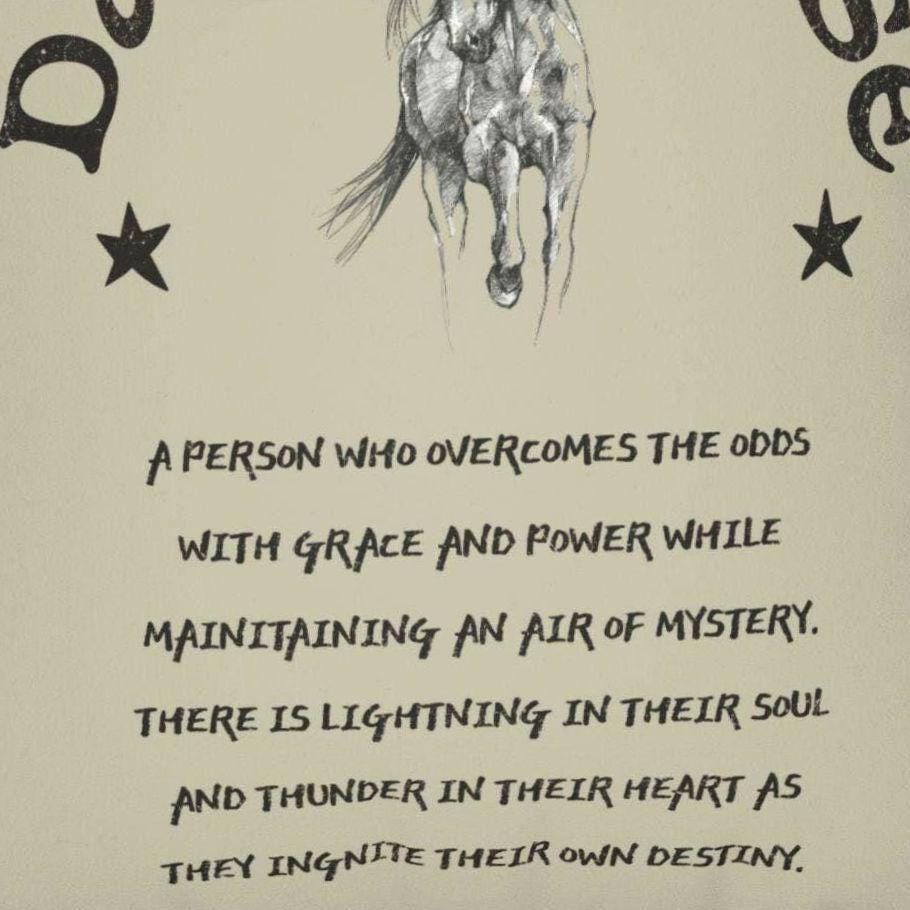 A PERSON WHO OVERCOMES THE ODDS
WITH GRACE AND POWER WHILE
MAINITAINING AN AIR OF MYSTERY.
THERE IS LIGHTNING IN THEIR SOUL
AND THUNDER IN THEIR HEART AS
THEY INGNITE THEIR OWN DESTINY.